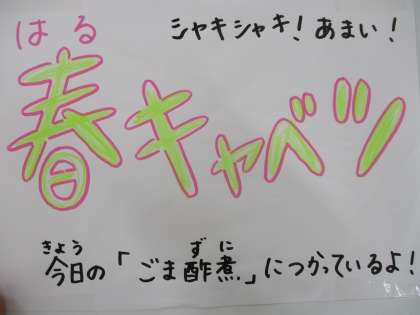 はる
シャキシャキ!あまい!
春キャベツ
きょう ずに
今日の「ごま酢煮」につかっているよ!